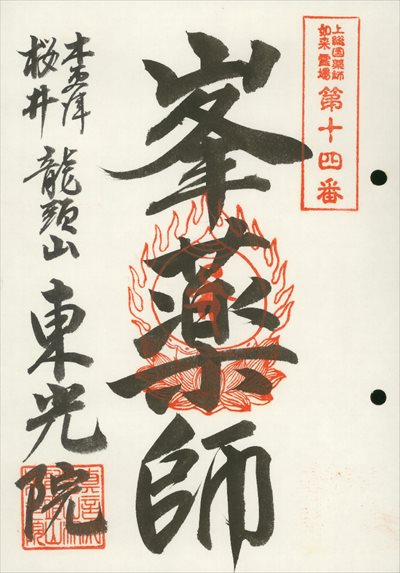 上総国薬師
如来霊場
第十四番
峯薬師
木更津
桜井
龍頭山
東光院